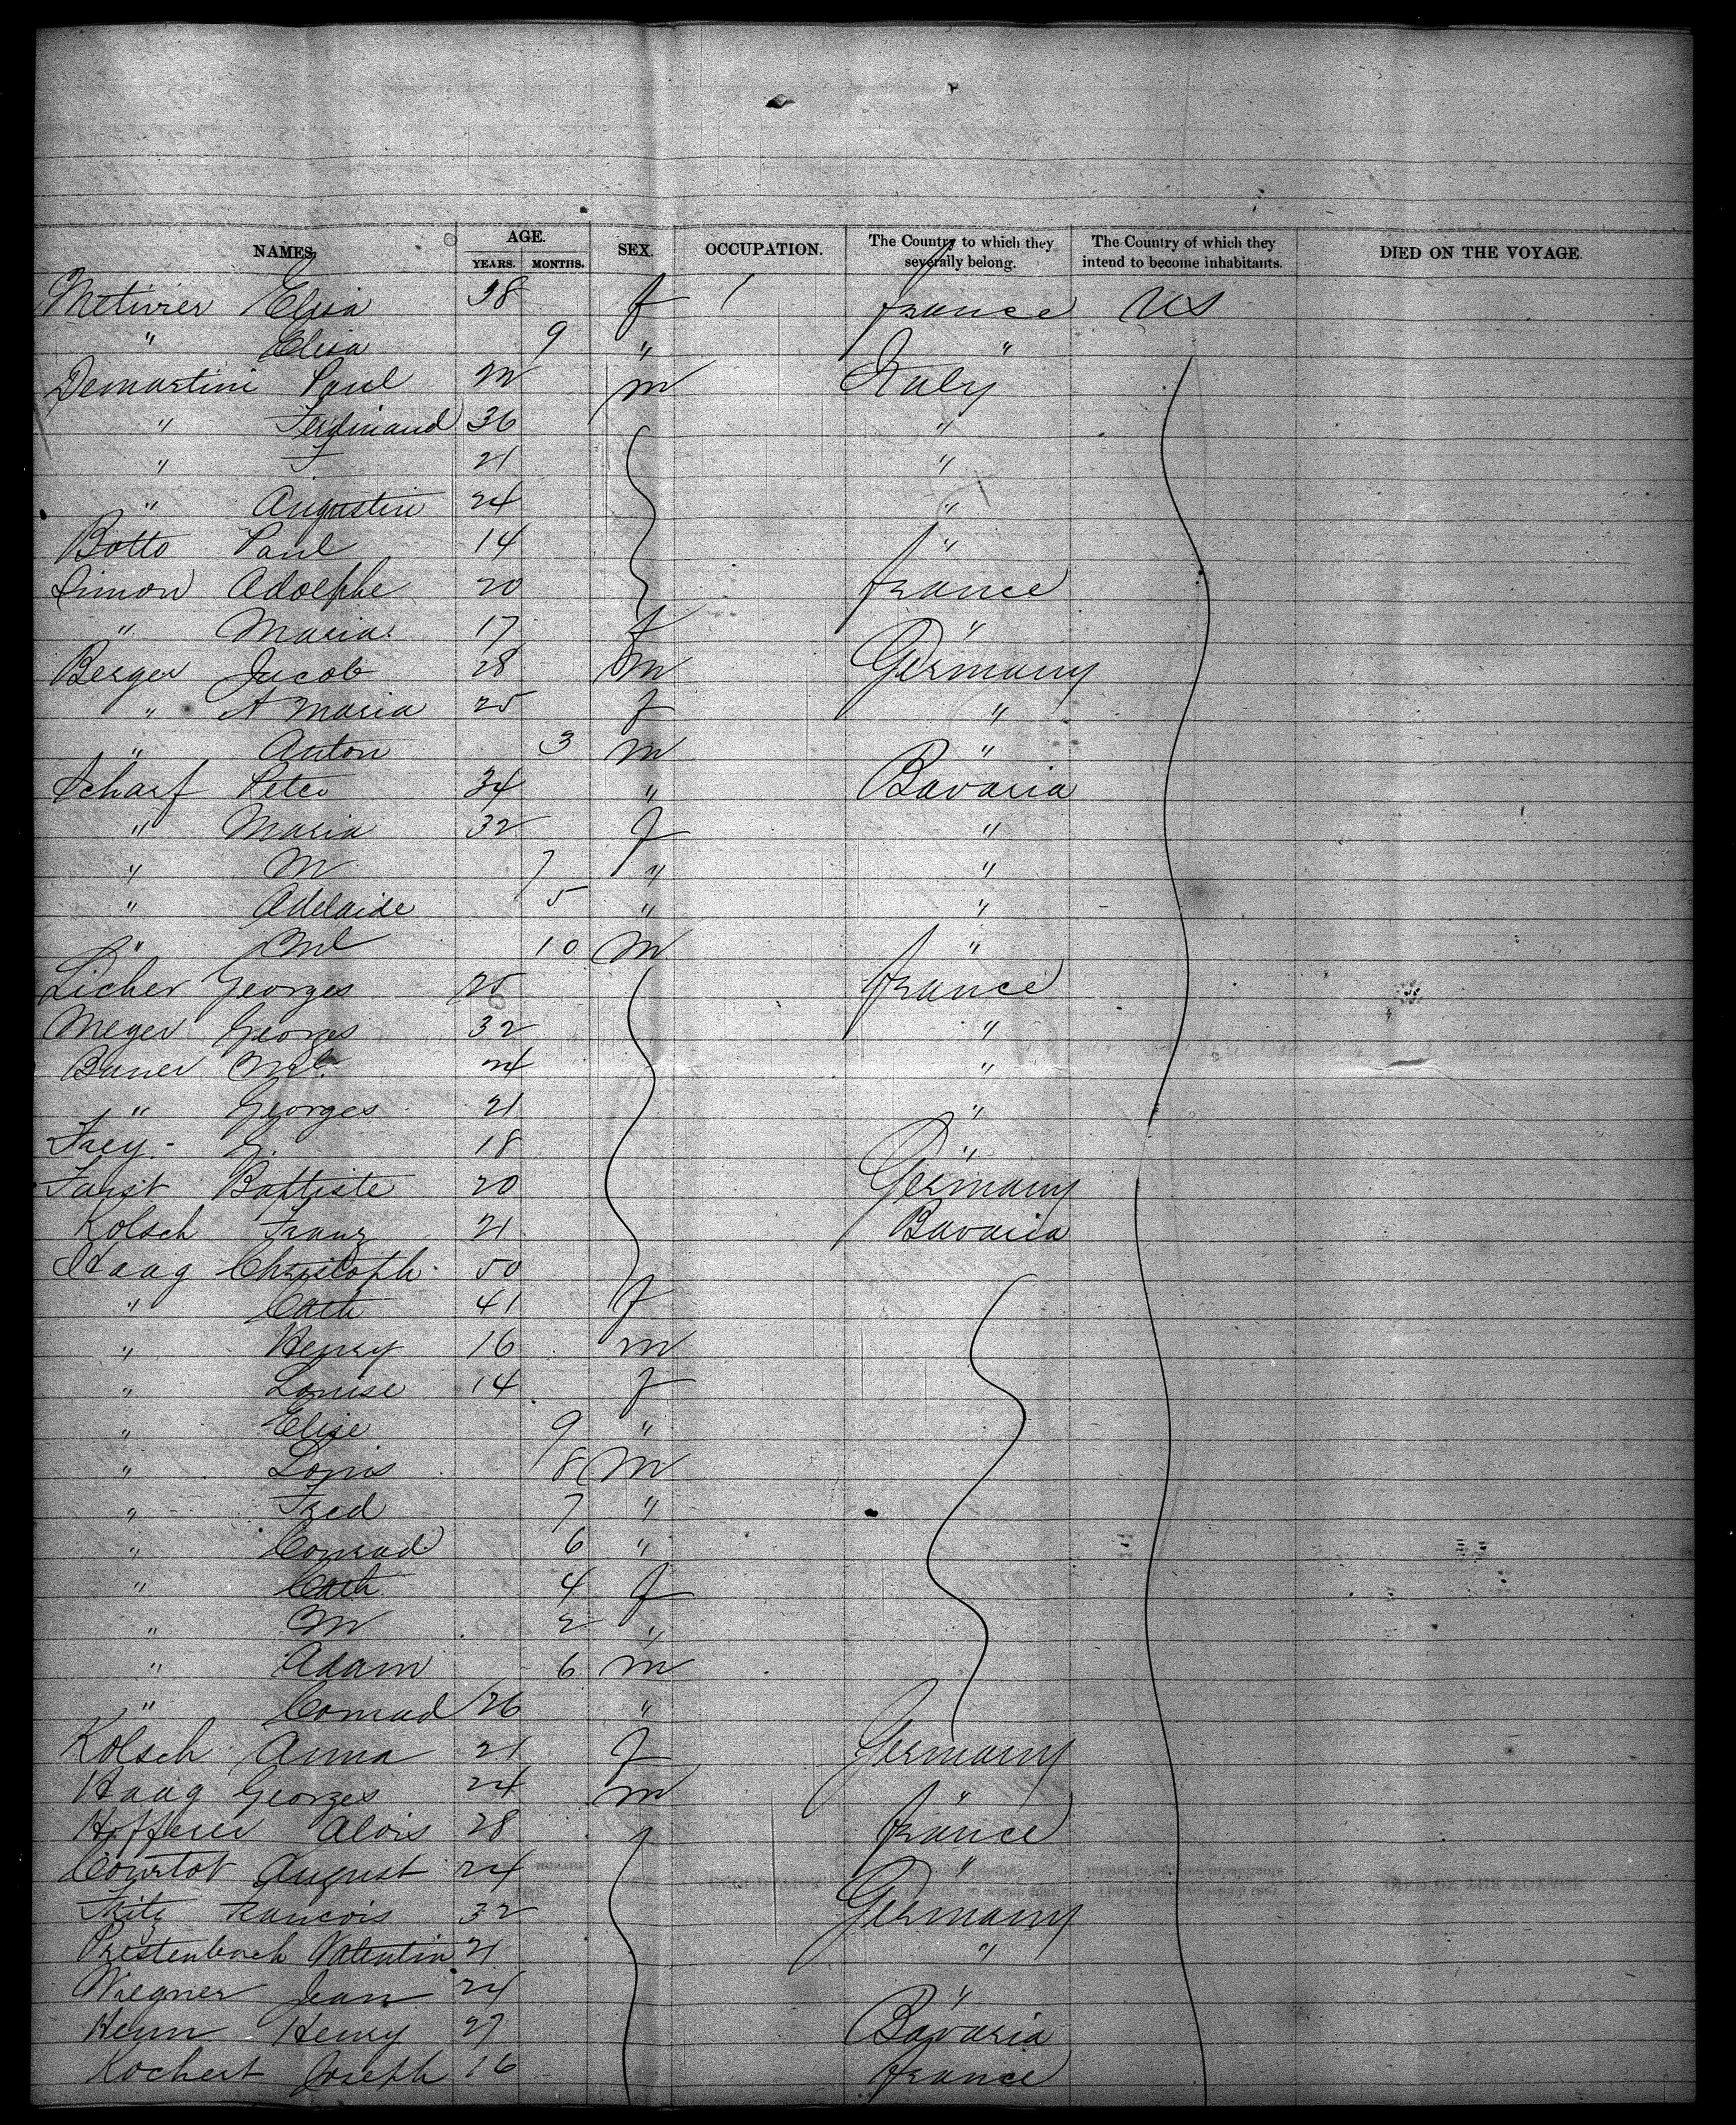 NAMES. AGE. SEX. OCCUPATION. The Country to which they severally belong. The Country of which they intend to become inhabitants. DIED ON THE VOYAGE.
YEARS. MONTHS.
Metivier Elisa 38 f / france US
" Elisa 9 " "
Demartini Paul 22 m Italy
" Ferdinand 36 "
" F 21 "
" Augustin 24 "
Botto Paul 14 "
Simon Adolphe 20 france
" Maria 17 f "
Berger Jacob 28 m Germany
" A Maria 25 f "
" Anton 3 m "
Scharf Peter 34 " Bavaria
" Maria 32 f "
" M 7 " "
" Adelaide 5 " "
" Ml 10 m "
Licher Georges 25 france
Meyer Georges 32 "
Bauer Ml 24 "
" Georges 21 "
Frey G. 18 "
Faust Baptiste 20 Germany
Kolsch Franz 21 Bavaria
Haag Christoph 50
" Cath 41 f
" Henry 16 m
" Louise 14 f
" Elise 9 "
" Louis 8 m
" Fred 7 "
" Conrad 6 "
" Cath 4 f
" M 2 "
" Adam 6 m
" Conrad 26 "
Kolsch Anna 21 f Germany
Haag Georges 24 m "
Hofferer Alois 28 france
Courtot August 24 "
Fritz francois 32 Germany
Prestenbach Valentin 21 "
Wregner Jean 24 "
Henn Henry 27 Bavaria
Kochert Joseph 16 france